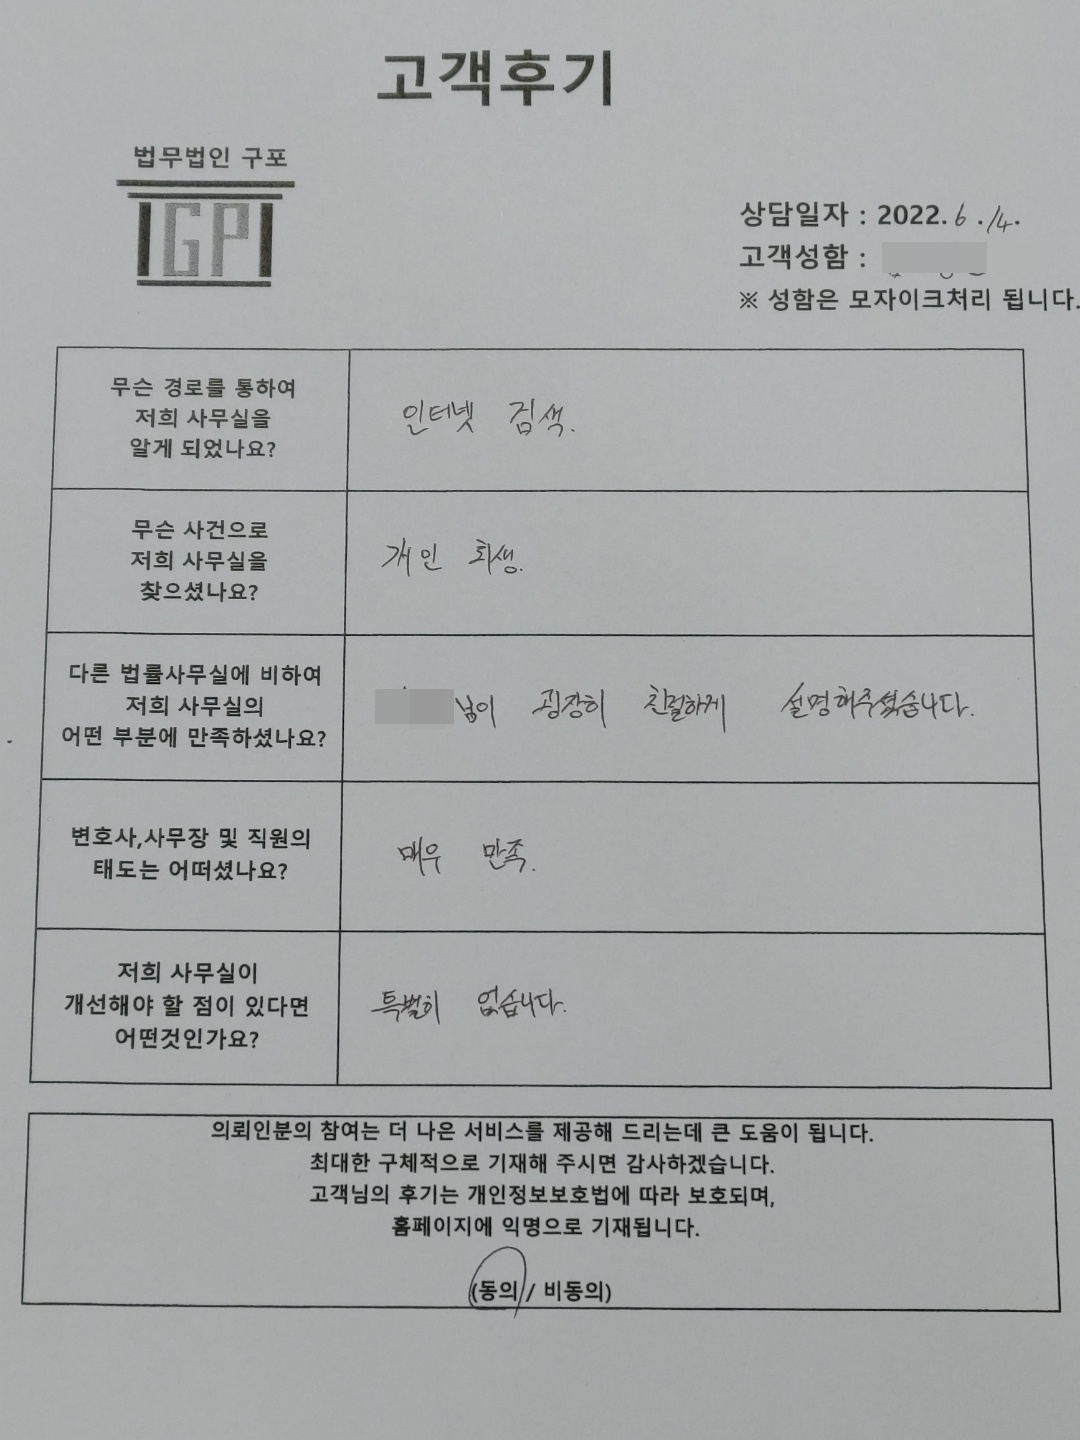 고객후기
법무법인 구포
GP
상담일자 : 2022. 6 . 14.
고객성함 :
※ 성함은 모자이크처리 됩니다.
무슨 경로를 통하여
저희 사무실을
알게 되었나요?
인터넷 검색.
무슨 사건으로
저희 사무실을
찾으셨나요?
개인 회생.
다른 법률사무실에 비하여
저희 사무실의
어떤 부분에 만족하셨나요?
님이 굉장히 친절하게 설명해주셨습니다.
변호사,사무장 및 직원의
태도는 어떠셨나요?
매우 만족.
저희 사무실이
개선해야 할 점이 있다면
어떤것인가요?
특별히 없습니다.
의뢰인분의 참여는 더 나은 서비스를 제공해 드리는데 큰 도움이 됩니다.
최대한 구체적으로 기재해 주시면 감사하겠습니다.
고객님의 후기는 개인정보보호법에 따라 보호되며,
홈페이지에 익명으로 기재됩니다.
(동의 / 비동의)